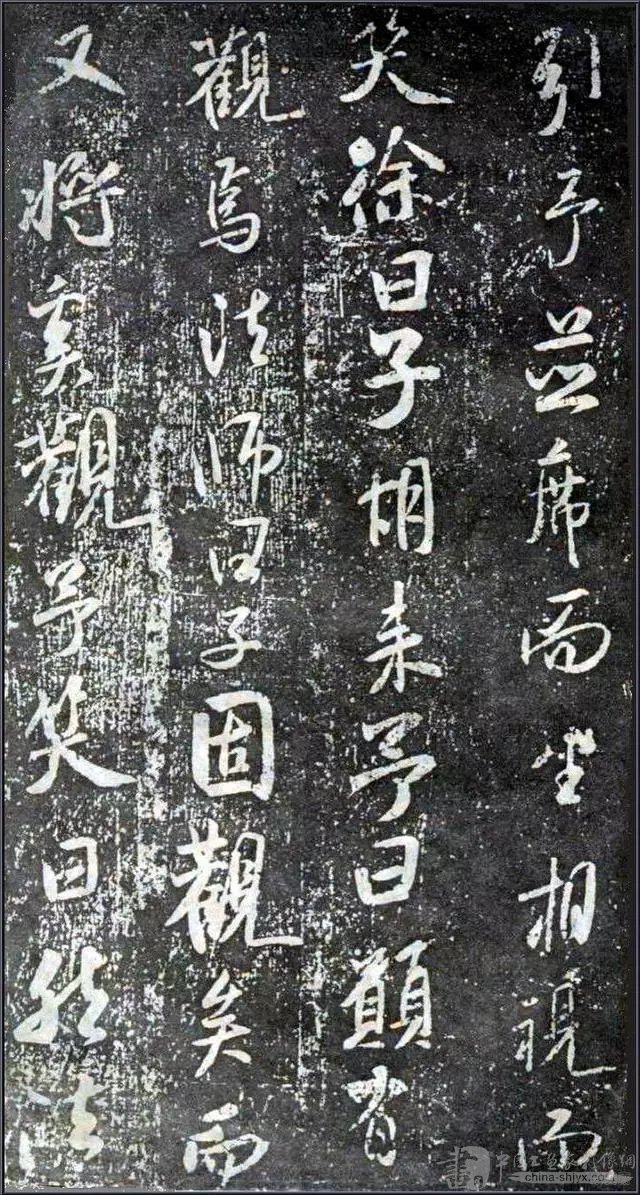 引予並席而坐相視而
笑徐曰子胡来予曰願有
觀焉法師曰子固觀矣而
又將奚觀予笑曰然法
china-shiyx.com